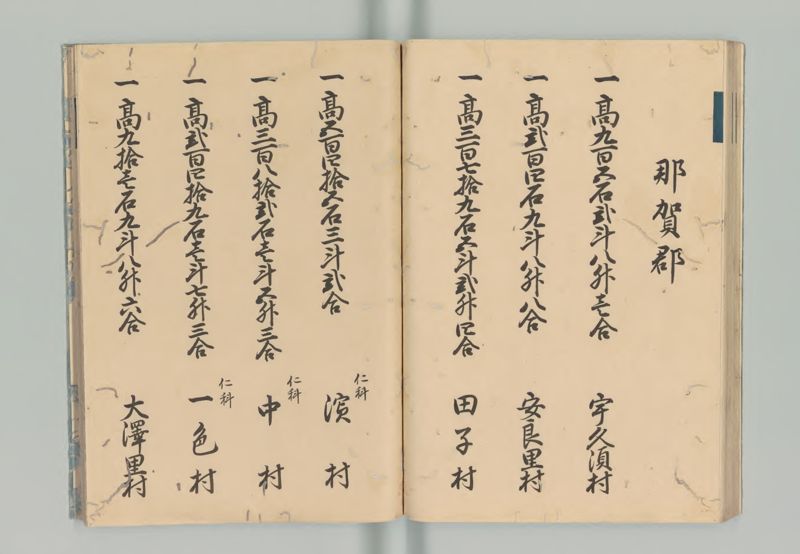 那賀郡
一 高九百六石弐斗八升壱合 宇久須村
一 高弐百四石九斗八升八合 安良里村
一 高三百七拾九石六斗弐升四合 田子村
一 高五百四拾五石三斗弐合 仁科 濱村
一 高三百八拾弐石壱斗五升三合 仁科 中村
一 高弐百四拾九石壱斗七升三合 仁科 一色村
一 高九拾壱石九斗八升六合 大澤里村